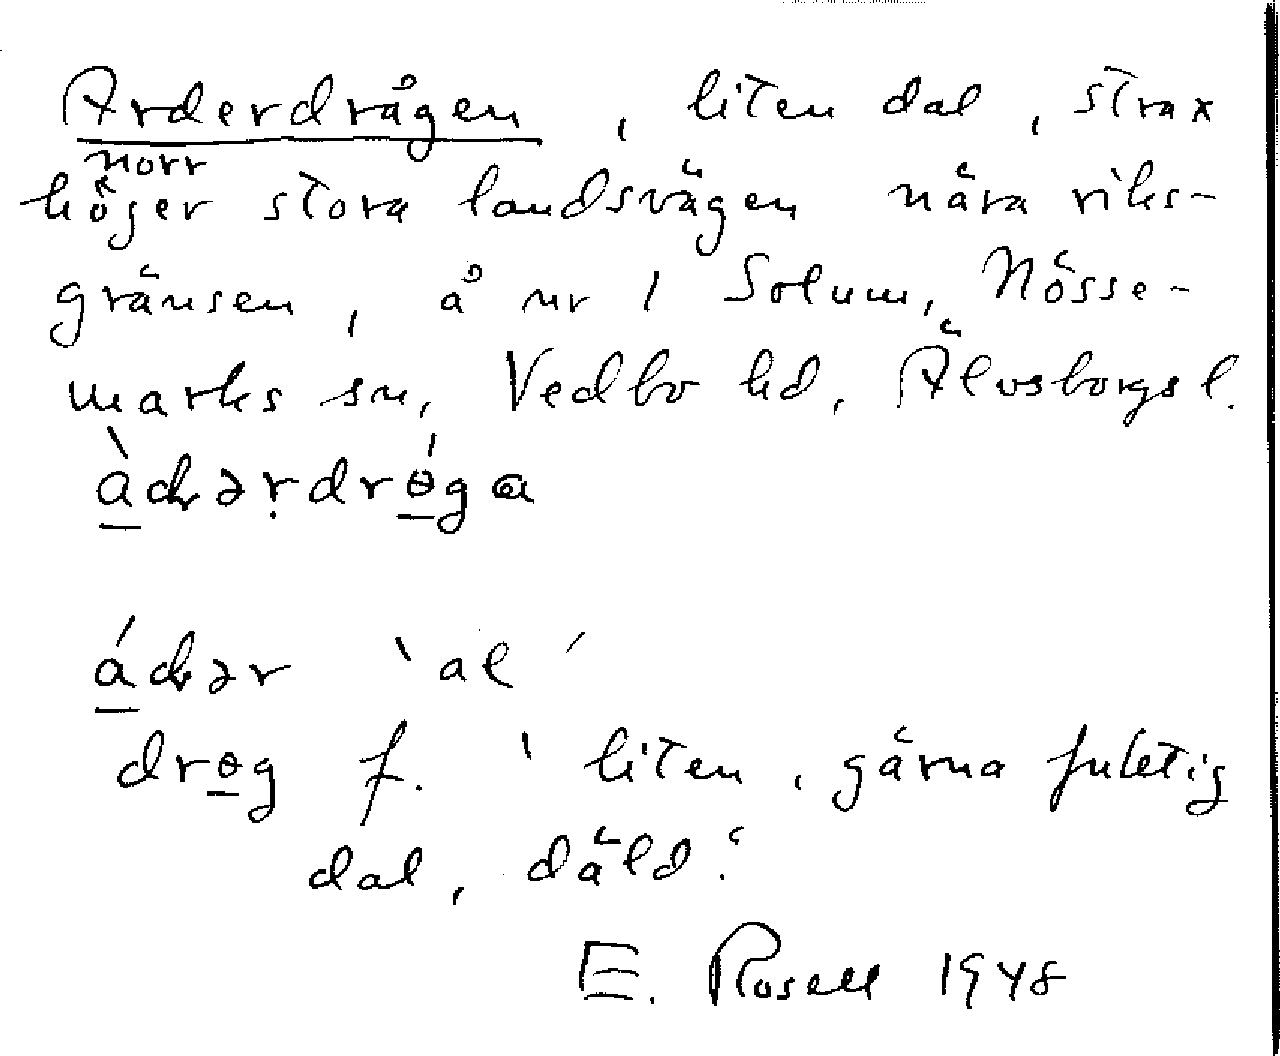 Arderdrågen, liten dal, strax
norr
höger stora landsvägen nära riks-
gränsen, å nr 1 Solum, Nösse-
marks sn, Vedbo hd, Älvsborgs l.
drɵg f. ' liten, gärna fuktig
dal, däld.'
E. Rosell 1948